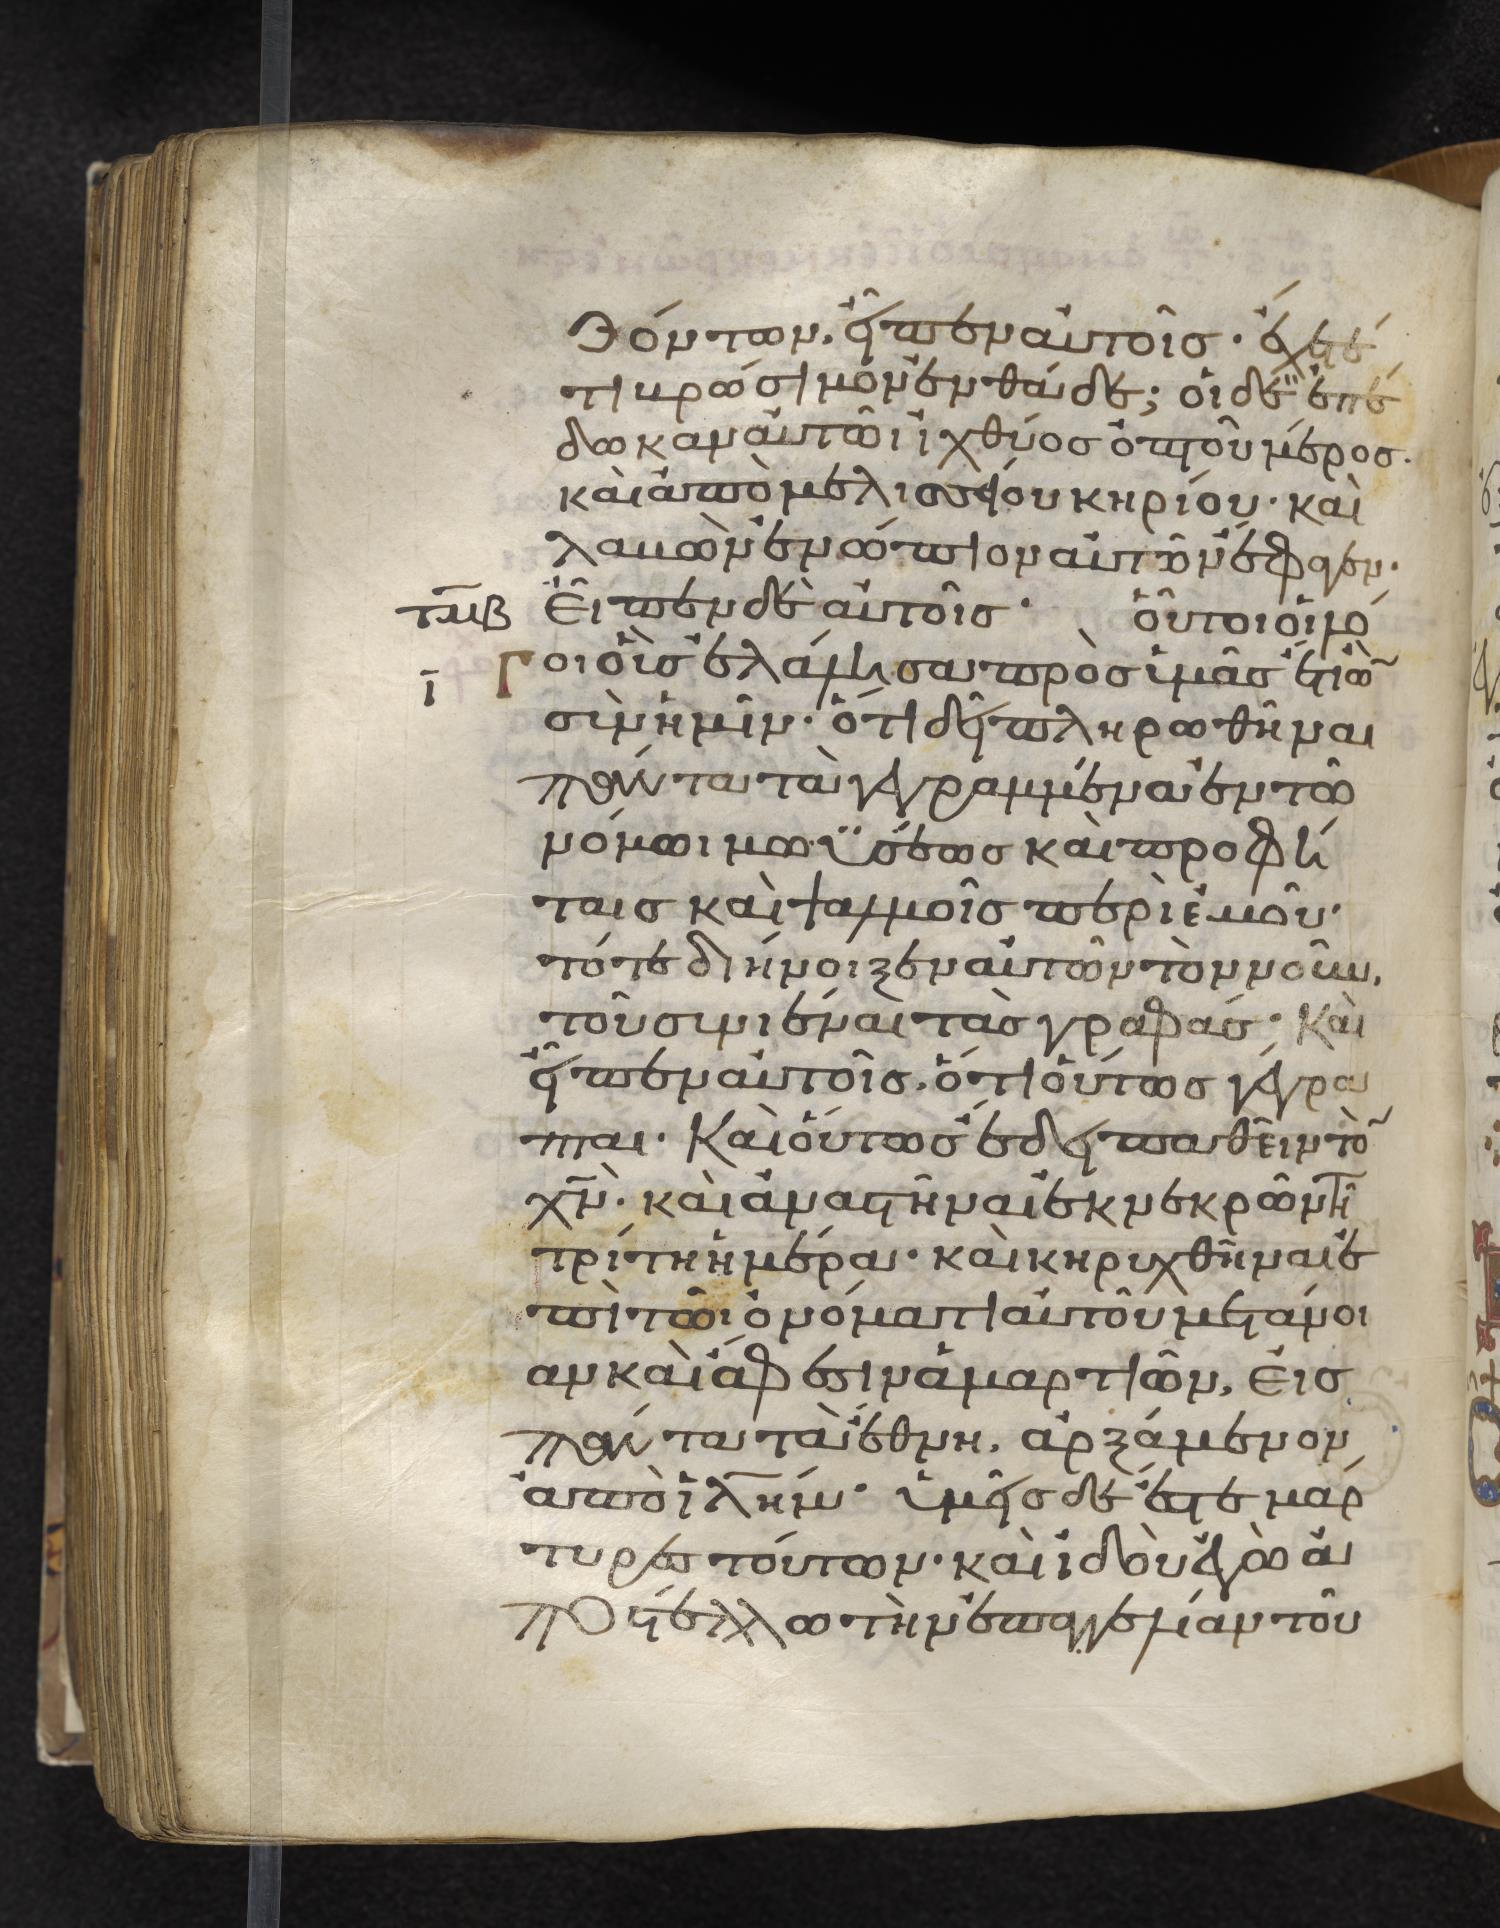 θόντων, εἶπεν αὐτοῖς· ἔχετέ
τι βρώσιμον ἐνθάδε; οἱ δὲ ἐπέ
δωκαν αὐτῶι ἰχθύος ὀπτοῦ μέρος·
καὶ ἀπὸ μελισσίου κηρίου· καὶ
λαβὼν ἐνώπιον αὐτῶν ἔφαγεν·
τμβ Εἶπεν δὲ αὐτοῖς· οὗτοι οἱ λό
ι γοι οἷς ἐλάλησα πρὸς ὑμᾶς ἔτι ὢ
σὺν ἡμῖν· ὅτι δεῖ πληρωθῆναι
πάντα τὰ γεγραμμένα ἐν τῶ
νόμωι μωϋσέως καὶ προφή
ταις καὶ ψαλμοῖς περὶ ἐμοῦ·
τότε διήνοιξεν αὐτῶν τὸν νοῦν,
τοῦ συνιέναι τὰς γραφάς· Καὶ
εἶπεν αὐτοῖς, ὅτι οὕτως γέγρα
πται· Καὶ οὕτως ἔδει παθεῖν τὸ
χν· καὶ ἀναστῆναι ἐκ νεκρῶν τῆ
τρίτη ἡμέρα· καὶ κηρυχθῆναι ἐ
πὶ τῶι ὀνόματι αὐτοῦ μετάνοι
αν καὶ ἄφεσιν ἁμαρτιῶν, Εἰς
πάντα τὰ ἔθνη, ἀρξάμενον
ἀπὸ ἱλήμ· ὑμεῖς δέ ἐστε μάρ
τυρες τούτων· καὶ ἰδοὺ ἐγὼ ἀ
ποστέλλω τὴν ἐπαγγελίαν τοῦ